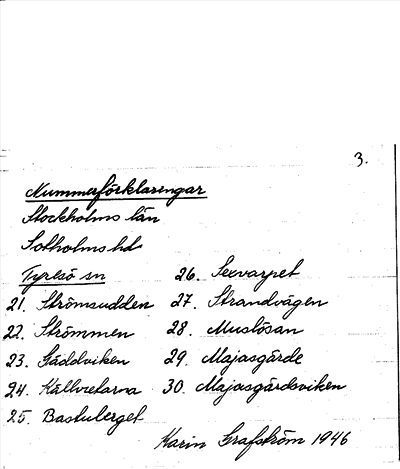 3.
Nummerförklaringar
Stockholms län
Sotholms hd
Tyresö sn
21. Strömsudden
22. Strömmen
23. Gäddviken
24. Källvretarna
25. Bastuberget
26. Sexvarpet
27. Strandvägen
28. Muslösan
29. Majasgärde
30. Majasgärdsviken
Karin Grafström 1946